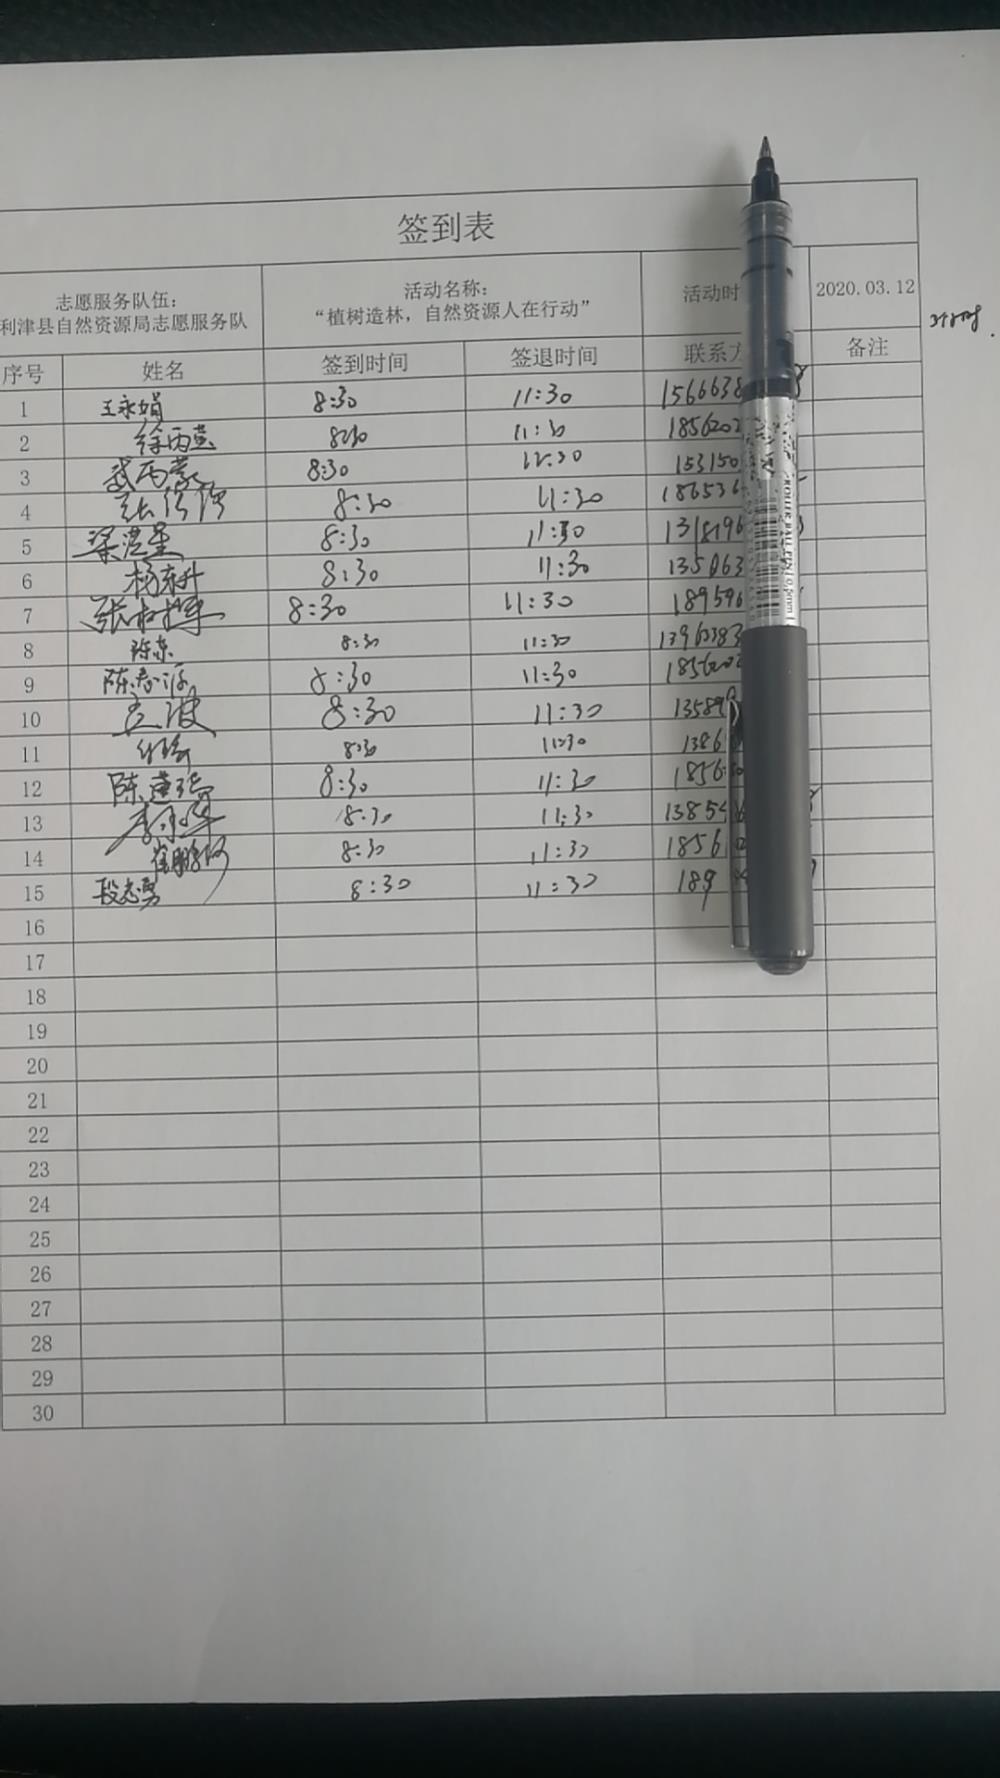 签到表
志愿服务队伍: 活动名称: 活动时 2020.03.12
利津县自然资源局志愿服务队 “植树造林，自然资源人在行动”
序号 姓名 签到时间 签退时间 联系方 备注
1 王永娟 8:30 11:30 1566638
2 徐丙燕 8:30 11:30 185620
3 武丙蒙 8:30 11:30 153150
4 张 8:30 11:30 186536
5 梁洪星 8:30 11:30 1318196
6 杨东升 8:30 11:30 135063
7 张 8:30 11:30 189596
8 陈东 8:30 11:30 13963383
9 陈春源 8:30 11:30 185620
10 王波 8:30 11:30 13589
11 8:30 11:30 1386
12 陈莲 8:30 11:30 1856
13 李永军 8:30 11:30 13854
14 崔鹏 8:30 11:30 1856
15 段志勇 8:30 11:30 189
16
17
18
19
20
21
22
23
24
25
26
27
28
29
30